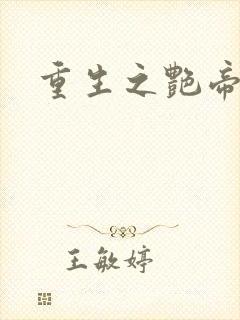 重生之艷帝
王敏婷